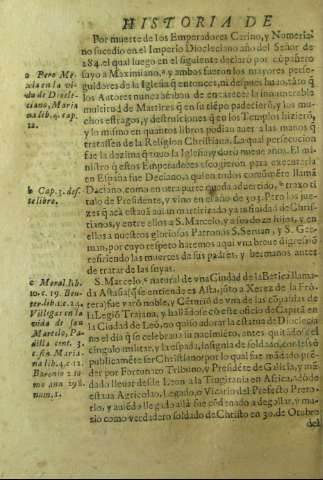 HISTORIA DE
Por muerte de los Emperadores Carino, y Numeria-
no sucedio en el Imperio Diocleciano año del Señor de
284. el qual luego en el siguiente declaró por cōpañero
suyo a Maximiano, a y ambos fueron los mayores perse-
guidores de la Iglesia
los Autores nunca acaban de encarecer la innumerable
multitud de Martires q̄ en su tiēpo padecierō, y los mu-
chos estragos, y destruiciones q̄ en los Templos hizierō,
y lo mismo en quantos libros podian auer a las manos q̄
tratassen de la Religion Christiana. La qual persecucion
fue la dezima q̄ tuuo la Iglesia, y duró nueue años. El mi-
nistro q̄ estos Emperadores escogieron para executarla
en España fue Daciano, a quien todos comúmēte llamā
Daciano, como en otra parte queda aduertido, b traxo ti-
tulo de Presidente, y vino en el año de 303. Pero los jue-
zes q̄ acá estauā auian martirizado ya infinidad de Chris-
tianos, y entre ellos a S. Marcelo, y a los doze hijos, y en
ellos a nuestros gloriosos Patronos S. Seruan, y S. Ger-
man, por cuyo respeto haremos aqui vna breue digressiō
refiriendo las muertes de sus padres, y hermanos antes
de tratar de las suyas.
S. Marcelo c natural de vna Ciudad de la Betica llama-
da Asta (q̄ se entiende es Asta, jūto a Xerez de la Frō-
tera) fue varō noble, y Cēturiō de vna de las cōpañias de
la Legiō Trajana, y hallādose cō este oficio de Capitā en
la Ciudad de Leō, no quiso adorar la estatua de Diocleciano
no el dia q̄ se celebraua su nacimiēto, antes quitādose el
cingulo militar, y la espada, insignia de soldado, cōfessó
publicamēte ser Christiano: por lo qual fue mādado prē-
der por Fortunato Tribuno, y Presidēte de Galicia, y mā-
dado lleuar desde Leon a la Tingitania en Africa, adōde
estaua Agricolao, Legado, o Vicario del Prefecto Preto-
rio, y auiēdo llegado allá fue cōdenado a degollar, y mu-
rio como verdadero soldado de Christo en 30. de Otubre
del
a Pero Me-
xia en la vi-
da de Diocle-
ciano, Maria
na lib. 4. cap.
12.
b Cap. 3. deste
libro.
c Moral. lib.
10. c. 19. Beu-
ter. lib. 1. c. 24.
Villegas en la
vida de San
Marcelo, Pa-
dilla cent. 3.
c. fin. Maria-
na lib. 4. c. 12.
Baronio 2. to
mo ann. 298.
num. 1.